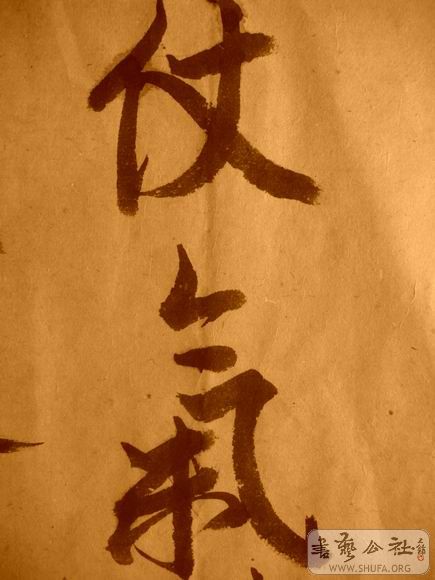 仗氣
書藝公社
WWW.SHUFA.ORG